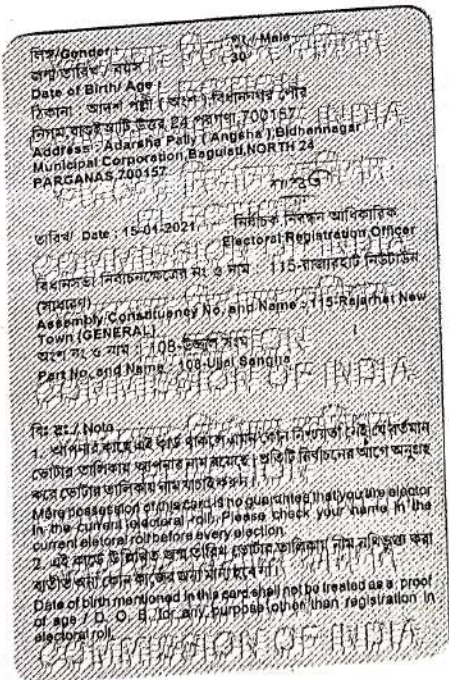 লিঙ্গ/Gender : পুং / Male
জন্ম তারিখ / বয়স 30
Date of Birth/ Age :
ঠিকানা : আদর্শ পল্লী ( অংশ ) বিধাননগর পৌর
নিগম,বাগুইআটি,উত্তর 24 পরগণা,700157
Address : Adarsha Pally ( Angsha ),Bidhannagar
Municipal Corporation,Baguiati,NORTH 24
PARGANAS,700157
তারিখ/ Date : 15-01-2021 নির্বাচক নিবন্ধন আধিকারিক
Electoral Registration Officer
বিধানসভা নির্বাচনক্ষেত্রের নং ও নাম : 115-রাজারহাট নিউটাউন
(সাধারণ)
Assembly Constituency No. and Name : 115-Rajarhat New
Town (GENERAL)
অংশ নং ও নাম : 108-উজ্জ্বল সংঘ
Part No. and Name : 108-Ujjal Sangha
বিঃ দ্রঃ / Note
1. আপনার কাছে এই কার্ড থাকলে এমন কোন নিশ্চয়তা নেই যে বর্তমান
ভোটার তালিকায় আপনার নাম রয়েছে। প্রতিটি নির্বাচনের আগে অনুগ্রহ
করে ভোটার তালিকায় নাম যাচাই করুন।
Mere possession of this card is no guarantee that you are elector
in the current electoral roll. Please check your name in the
current eletoral roll before every election.
2. এই কার্ডে উল্লিখিত জন্ম তারিখ ভোটার তালিকায় নাম নথিভুক্ত করা
ব্যতীত অন্য কোন কাজের জন্য মান্য হবে না।
Date of birth mentioned in this card shall not be treated as a proof
of age / D. O. B. for any purpose other than registration in
electoral roll.
COMMISSION OF INDIA